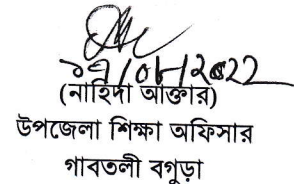 ১৭/০৮/২০২২
(নাহিদা আক্তার)
উপজেলা শিক্ষা অফিসার
গাবতলী বগুড়া